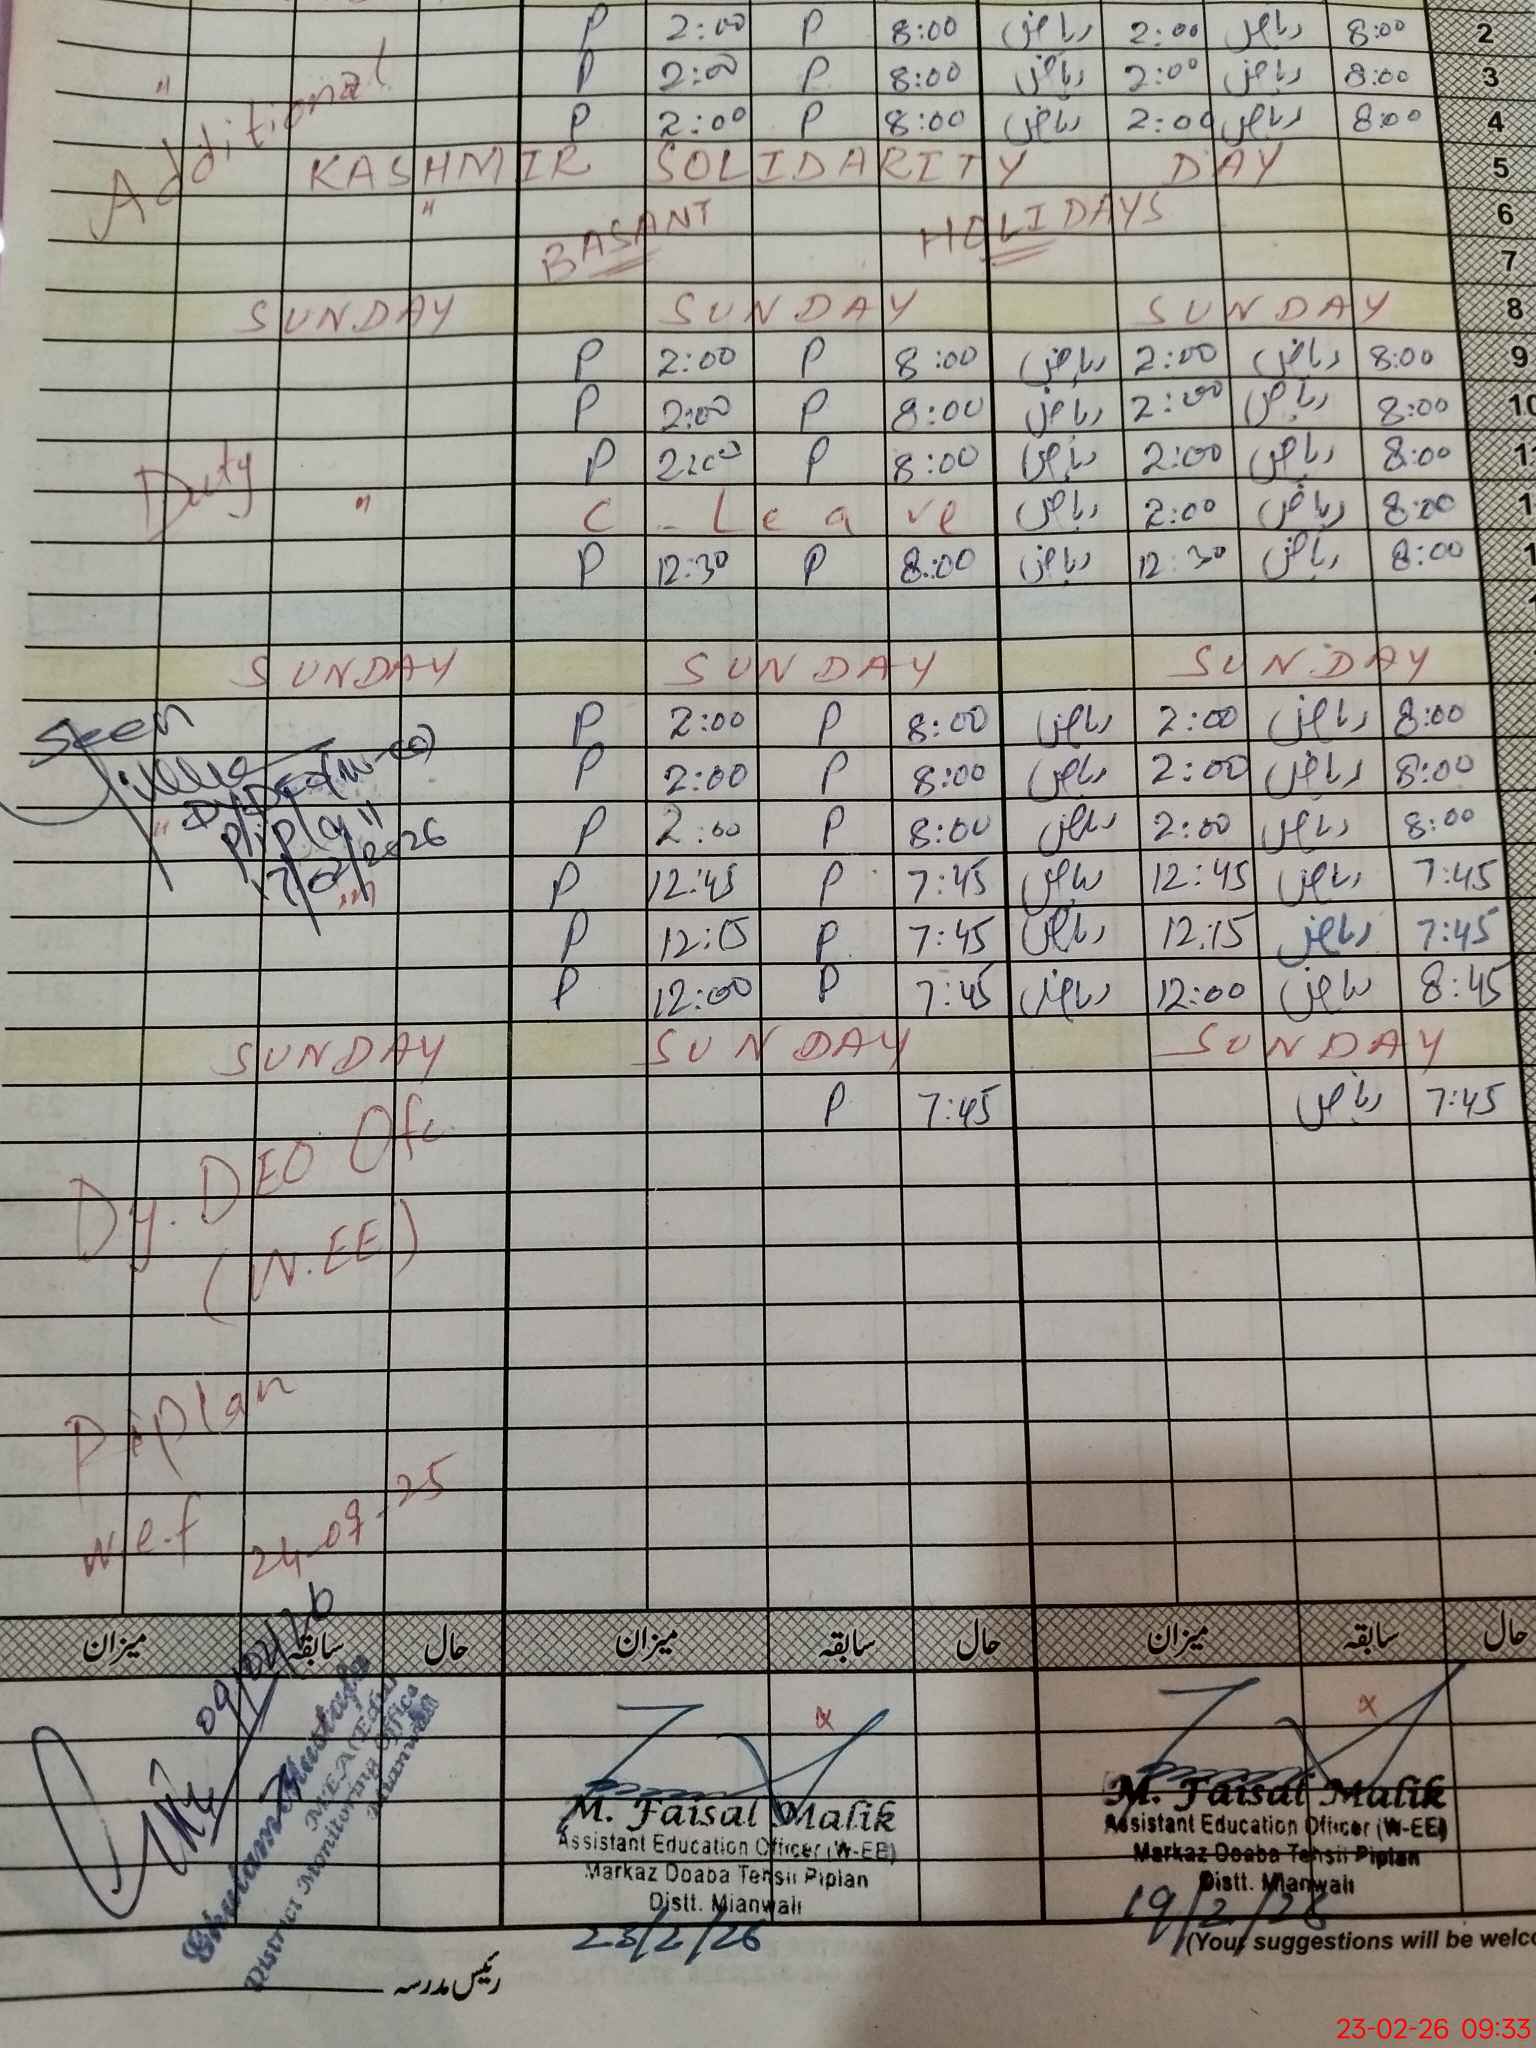 P 2:00 P 8:00 ریاض 2:00 ریاض 8:00 2
" P 2:00 P 8:00 ریاض 2:00 ریاض 8:00 3
Additional P 2:00 P 8:00 ریاض 2:00 ریاض 8:00 4
KASHMIR SOLIDARITY DAY 5
" BASANT HOLIDAYS 6
7
SUNDAY SUNDAY SUNDAY 8
P 2:00 P 8:00 ریاض 2:00 ریاض 8:00 9
P 2:00 P 8:00 ریاض 2:00 ریاض 8:00 10
Duty P 2:00 P 8:00 ریاض 2:00 ریاض 8:00
" C-Leave ریاض 2:00 ریاض 8:00
P 12:30 P 8:00 ریاض 12:30 ریاض 8:00
SUNDAY SUNDAY SUNDAY
Seen P 2:00 P 8:00 ریاض 2:00 ریاض 8:00
P 2:00 P 8:00 ریاض 2:00 ریاض 8:00
" P 2:00 P 8:00 ریاض 2:00 ریاض 8:00
17/02/2026 P 12:45 P 7:45 ریاض 12:45 ریاض 7:45
P 12:15 P 7:45 ریاض 12:15 ریاض 7:45
P 12:00 P 7:45 ریاض 12:00 ریاض 8:45
SUNDAY SUNDAY SUNDAY
P 7:45 ریاض 7:45
Dy. DEO Ofc
(W.EE)
Piplan
w.e.f 24-09-25
حال سابقہ میزان حال سابقہ میزان حال سابقہ میزان
09/02/26
Ghulam Mustafa
MEA (Edu)
District Monitoring Office
Mianwali
M. Faisal Malik
Assistant Education Officer (W-EE)
Markaz Doaba Tehsil Piplan
Distt. Mianwali
23/2/26
M. Faisal Malik
Assistant Education Officer (W-EE)
Markaz Doaba Tehsil Piplan
Distt. Mianwali
19/2/26
(Your suggestions will be
رئیس مدرسہ
23-02-26 09:33